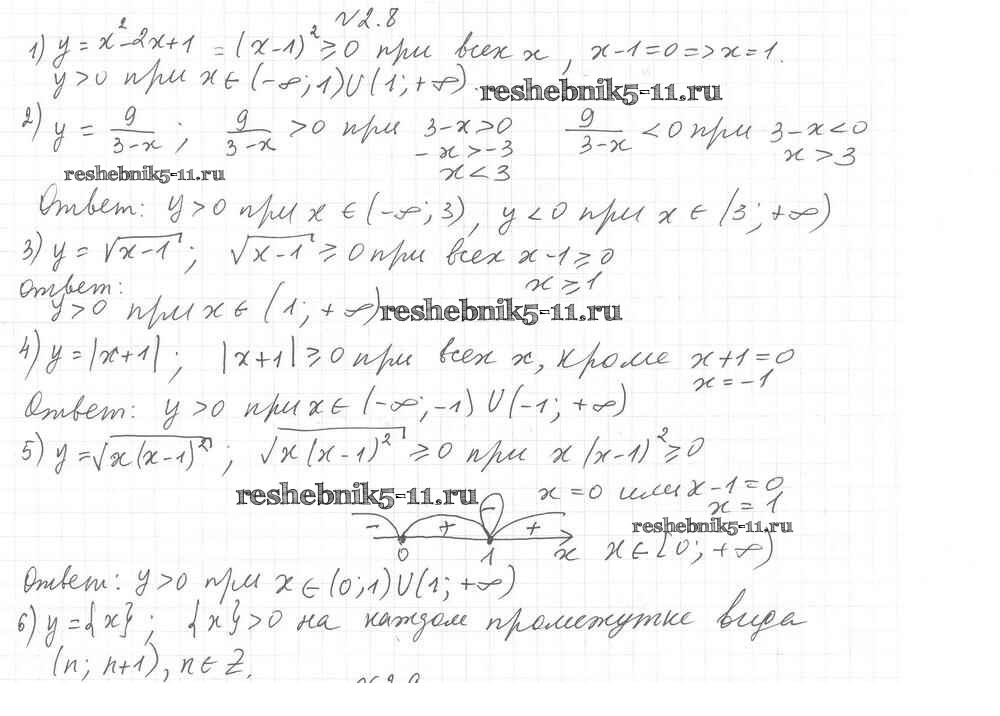 √2.8
1) y = x²-2x+1 = (x-1)² ≥ 0 при всех x, x-1=0 => x=1.
y>0 при x∈(-∞;1)∪(1;+∞).
reshebnik5-11.ru
2) y = 9/(3-x); 9/(3-x) >0 при 3-x>0 9/(3-x) <0 при 3-x<0
-x>-3 x>3
x<3
reshebnik5-11.ru
Ответ: y>0 при x∈(-∞;3), y<0 при x∈(3;+∞)
3) y = √(x-1); √(x-1) ≥ 0 при всех x-1≥0
x≥1
Ответ:
y>0 при x∈(1;+∞)
reshebnik5-11.ru
4) y=|x+1|; |x+1|≥0 при всех x, кроме x+1=0
x=-1
Ответ: y>0 при x∈(-∞,-1)∪(-1;+∞)
5) y=√(x(x-1)²); √(x(x-1)²) ≥0 при x(x-1)²≥0
reshebnik5-11.ru
x=0 или x-1=0
x=1
reshebnik5-11.ru
- + - +
0 1 x x∈[0;+∞)
Ответ: y>0 при x∈(0;1)∪(1;+∞)
6) y={x}; {x}>0 на каждом промежутке вида
(n; n+1), n∈Z.